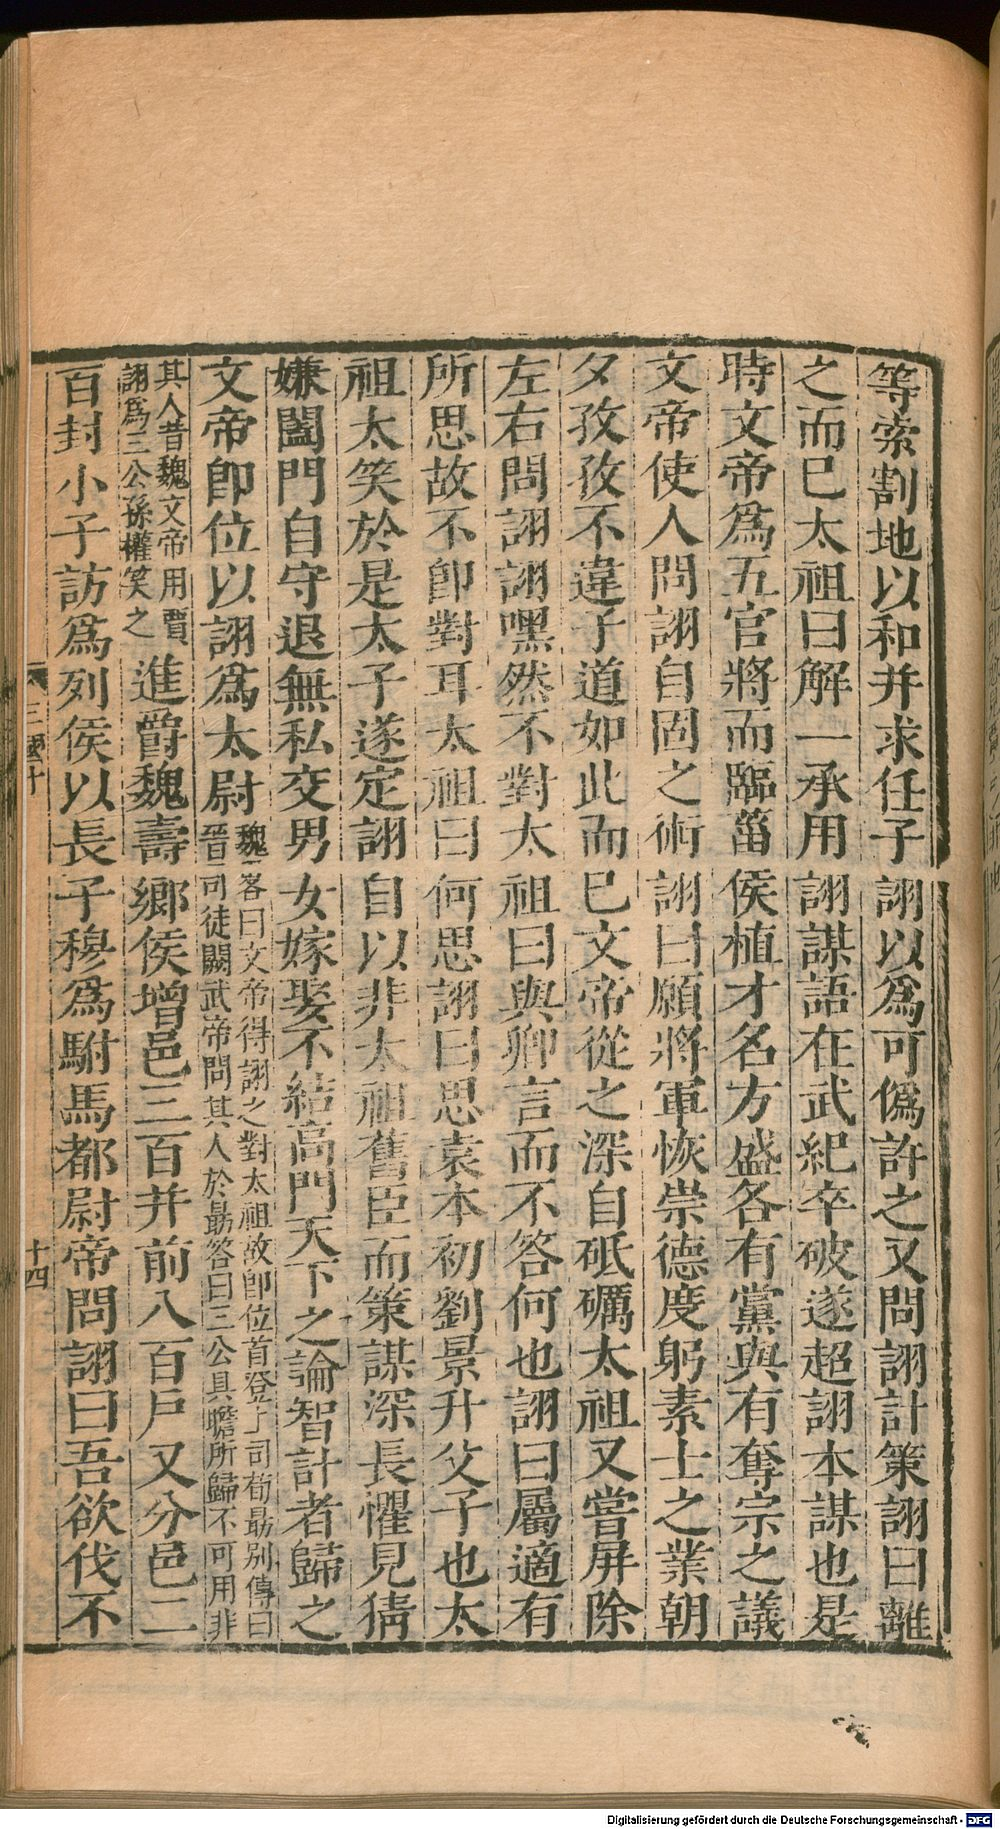 等索割地以和并求任子詡以爲可僞許之又問詡計策詡曰離
之而已太祖曰解一承用詡謀語在武紀卒破遂超詡本謀也是
時文帝爲五官將而臨菑侯植才名方盛各有黨與有奪宗之議
文帝使人問詡自固之術詡曰願將軍恢崇德度躬素士之業朝
夕孜孜不違子道如此而已文帝從之深自砥礪太祖又嘗屏除
左右問詡詡嘿然不對太祖曰與卿言而不答何也詡曰屬適有
所思故不卽對耳太祖曰何思詡曰思袁本初劉景升父子也太
祖大笑於是太子遂定詡自以非太祖舊臣而策謀深長懼見猜
嫌闔門自守退無私交男女嫁娶不結高門天下之論智計者歸之
文帝卽位以詡爲太尉
魏畧曰文帝得詡之對太祖故卽位首登上司荀勗別傳曰
晉司徒闕武帝問其人於勗答曰三公具瞻所歸不可用非
其人昔魏文帝用賈
詡爲三公孫權笑之
進爵魏壽鄉侯增邑三百并前八百戶又分邑二
百封小子訪爲列侯以長子穆爲駙馬都尉帝問詡曰吾欲伐不
三國十
十四
Digitalisierung gefördert durch die Deutsche Forschungsgemeinschaft - DFG